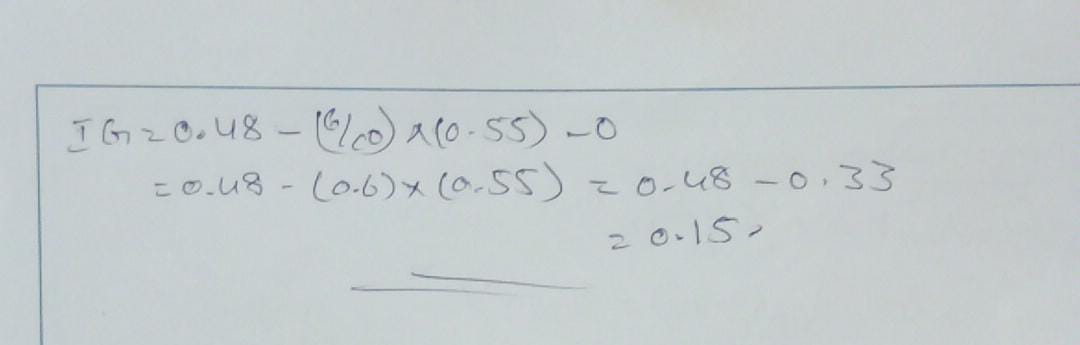 IG = 0.48 - (6/10) x (0.55) - 0
= 0.48 - (0.6) x (0.55) = 0.48 - 0.33
= 0.15